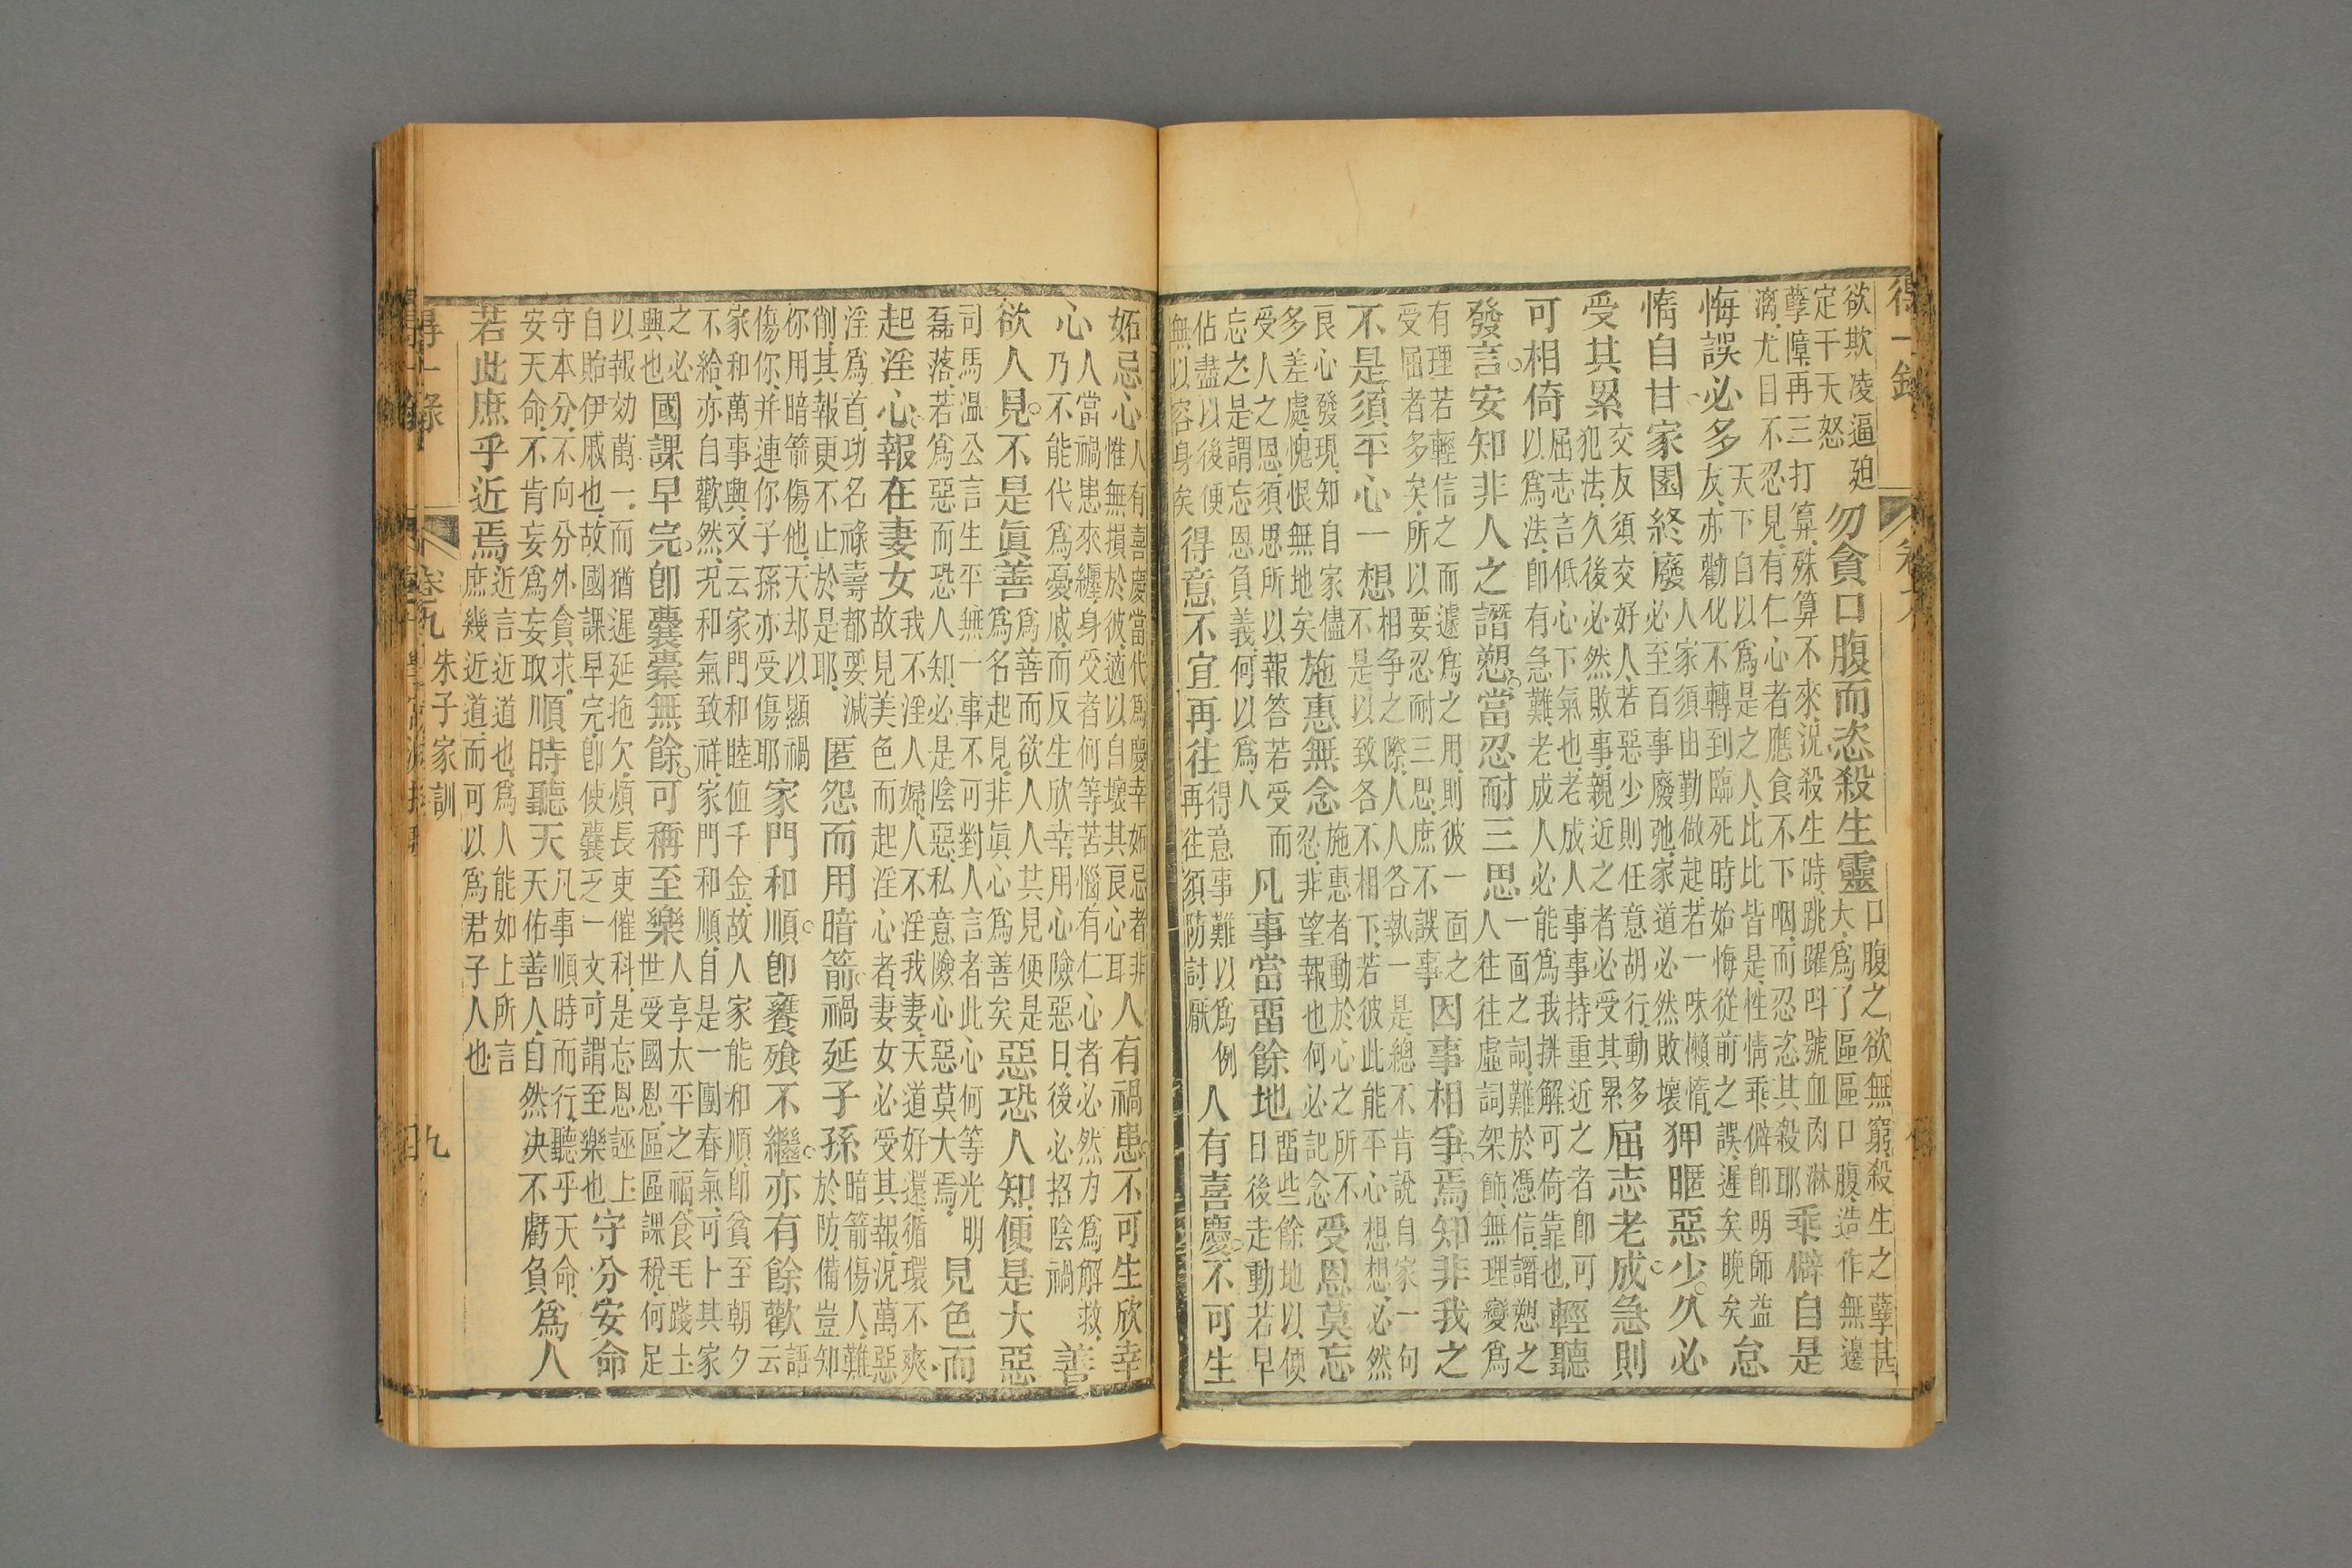 得一錄
欲欺凌逼廹
定干天怒
勿貪口腹而恣殺生靈
口腹之欲無窮殺生之孽甚
大爲了區區口腹造作無邊
孽障再三打算殊算不來況殺生時跳躍呌號血肉淋
漓尤目不忍見有仁心者應食不下咽而忍恣其殺耶
乖僻自是
悔誤必多
天下自以爲是之人比比皆是性情乖僻卽明師益
友亦勸化不轉到臨死時始悔從前之誤遲矣晚矣
怠
惰自甘家園終廢
人家須由勤做起若一味懶惰
必至百事廢弛家道必然敗壞
狎暱惡少久必
受其累
交友須交好人若惡少則任意胡行動多
犯法久後必然敗事親近之者必受其累
屈志老成急則
可相倚
屈志言低心下氣也老成人事事持重近之者卽可
以爲法卽有急難老成人必能爲我排解可倚靠也
輕聽
發言安知非人之譖愬當忍耐三思
一面之詞難於憑信譖愬之
人往往虛詞架飾無理變爲
有理若輕信之而遽爲之用則彼一面之
受屈者多矣所以要忍耐三思庶不誤事
因事相爭焉知非我之
不是須平心一想
相爭之際人人各執一是總不肯說自家一句
不是以致各不相下若彼此能平心想想必然
良心發現知自家儘
多差處愧恨無地矣
施惠無念
施惠者動於心之所不
忍非望報也何必記念
受恩莫忘
受人之恩須思所以報答若受而
忘之是謂忘恩負義何以爲人
凡事當畱餘地
畱些餘地以便
日後走動若早
佔盡以後便
無以容身矣
得意不宜再往
得意事難以爲例
再往須防討厭
人有喜慶不可生
妬忌心
人有喜慶當代爲慶幸妬忌者非
惟無損於彼適以自壞其良心耳
人有禍患不可生欣幸
心
人當禍患來纏身受者何等苦惱有仁心者必然力爲解救
乃不能代爲憂戚而反生欣幸用心險惡日後必招陰禍
善
欲人見不是眞善
爲善而欲人人共見便是
爲名起見非眞心爲善矣
惡恐人知便是大惡
司馬溫公言生平無一事不可對人言者此心何等光明
磊落若爲惡而恐人知必是陰惡私意險心惡莫大焉
見色而
起淫心報在妻女
我不淫人婦人不淫我妻天道好還循環不爽
故見美色而起淫心者妻女必受其報況萬惡
淫爲首功名祿壽都要減
削其報更不止於是耶
匿怨而用暗箭禍延子孫
暗箭傷人難
於防備豈知
你用暗箭傷他天却以顯禍
傷你并連你子孫亦受傷耶
家門和順卽饔飧不繼亦有餘歡
語
云
家和萬事興又云家門和睦値千金故人家能和順卽貧至朝夕
不給亦自歡然況和氣致祥家門和順自是一團春氣可卜其家
之必
興也
國課早完卽囊橐無餘可稱至樂
人享太平之福食毛踐土
世受國恩區區課稅何足
以報効萬一而猶遲延拖欠煩長吏催科是忘恩誣上
自貽伊戚也故國課早完卽使囊乏一文可謂至樂也
守分安命
守本分不向分外貪求
安天命不肯妄爲妄取
順時聽天
凡事順時而行聽乎天命
天佑善人自然決不虧負
爲人
若此庶乎近焉
近言近道也爲人能如上所言
庶幾近道而可以爲君子人也
得一錄
卷九
朱子家訓
九